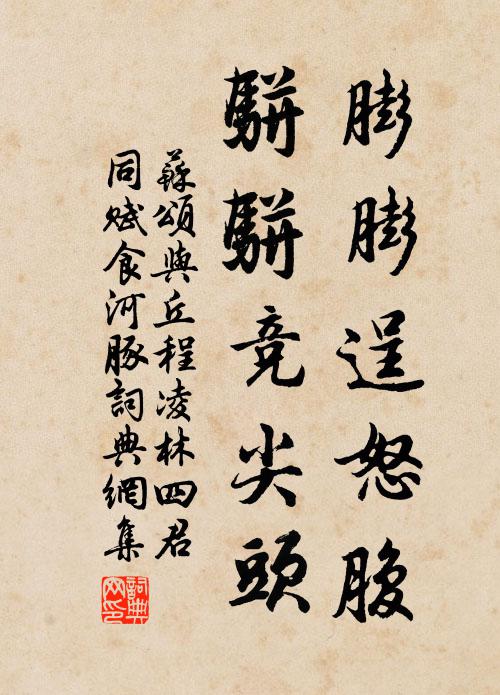 膨膨逞怒腹
駢駢竞尖頭
蘇頌與丘程凌林四君
同賦食河豚詞典網集
詞典网印